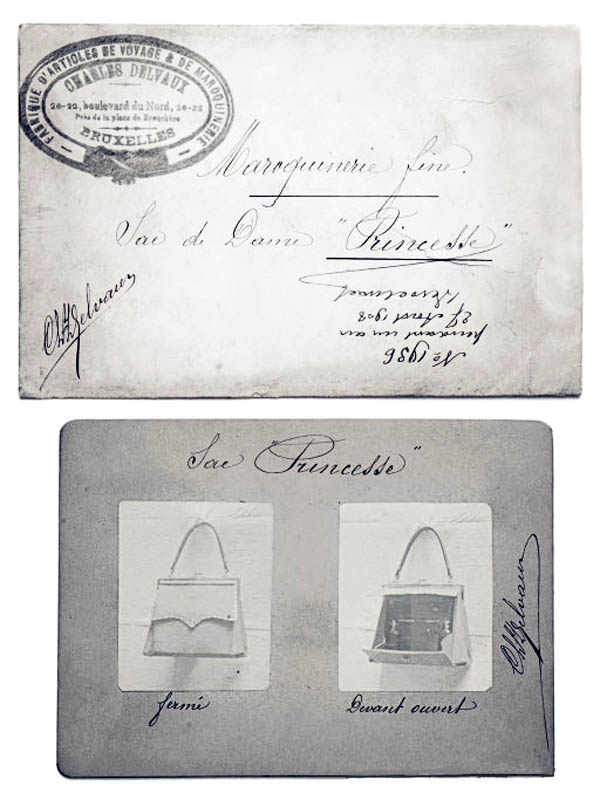 FABRIQUE D'ARTICLES DE VOYAGE & DE MAROQUINERIE
CHARLES DELVAUX
20-22, boulevard du Nord, 20-22
Près de la place de Brouckère
BRUXELLES
Maroquinerie fine.
Sac de Dame "Princesse"
Ch Delvaux
No 1986
pendant un an
27 Août 1908
Sac "Princesse"
fermé
Devant ouvert
Ch Delvaux